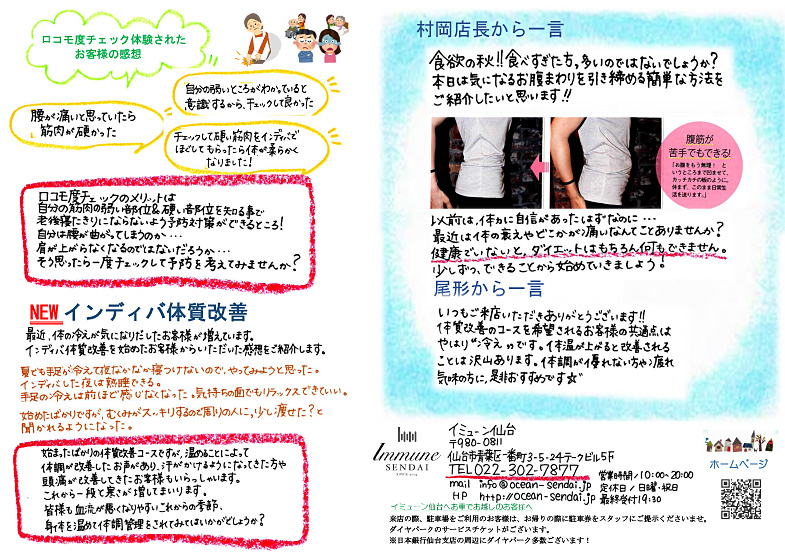 ロコモ度チェック体験された
お客様の感想
自分の弱いところがわかっていると
意識するから、チェックして良かった
腰が痛いと思っていたら
筋肉が硬かった
チェックして硬い筋肉をインディバで
ほぐしてもらったら体が柔らかく
なりました!
ロコモ度チェックのメリットは
自分の筋肉の弱い部位&硬い部位を知る事で
老後寝たきりにならないよう予防対策ができるところ!
自分は腰が曲がってしまうのか…
肩が上がらなくなるのではないだろうか…
そう思ったら一度チェックして予防を考えてみませんか?
NEW インディバ体質改善
最近、体の冷えが気になりだしたお客様が増えています。
インディバ体質改善を始めたお客様からいただいた感想をご紹介します。
夏でも手足が冷えて夜なかなか寝つけないので、やってみようと思った。
インディバした夜は熟睡できる。
手足の冷えは前ほど感じなくなった。気持ちの面でもリラックスできていい。
始めたばかりですが、むくみがスッキリするので周りの人に、少し痩せた?と
聞かれるようになった。
始まったばかりの体質改善コースですが、温めることによって
体調が改善したお声があり、汗がかけるようになってきた方や
頭痛が改善してきたお客様もいらっしゃいます。
これから一段と寒さが増してまいります。
皆様も血流が悪くなりやすいこれからの季節、
身体を温めて体調管理をされてみてはいかがでしょうか?
村岡店長から一言
食欲の秋!!食べすぎた方。多いのではないでしょうか?
本日は気になるお腹まわりを引き締める簡単な方法を
ご紹介したいと思います!!
腹筋が
苦手でもできる!
「お腹をもう無理! と
いうところまで凹ませて、
カッチカチの板のように。
休まず、このまま日常生
活を送ります。」
以前は、体力に自信があったはずなのに…
最近は体の衰えやどこかが痛いなんてことありませんか?
健康でいないと、ダイエットはもちろん何もできません。
少しずつ、できることから始めていきましょう!
尾形から一言
いつもご来店いただきありがとうございます!!
体質改善のコースを希望されるお客様の共通点は
やはり"冷え"です。体温が上がると改善される
ことは沢山あります。体調が優れない方や疲れ
気味の方に、是非おすすめです☆
Immune
SENDAI
イミューン仙台
〒980-0811
仙台市青葉区一番町3-5-24テークビル5F
TEL022-302-7877
mail info@ocean-sendai.jp
HP http://ocean-sendai.jp
営業時間/10:00~20:00
定休日/日曜・祝日
最終受付19:30
ホームページ
イミューン仙台へお車でお越しのお客様へ
来店の際、駐車場をご利用のお客様は、お帰りの際に駐車券をスタッフにご提示くださいませ。
ダイヤパークのサービスチケットがございます。
※日本銀行仙台支店の周辺にダイヤパーク多数ございます!